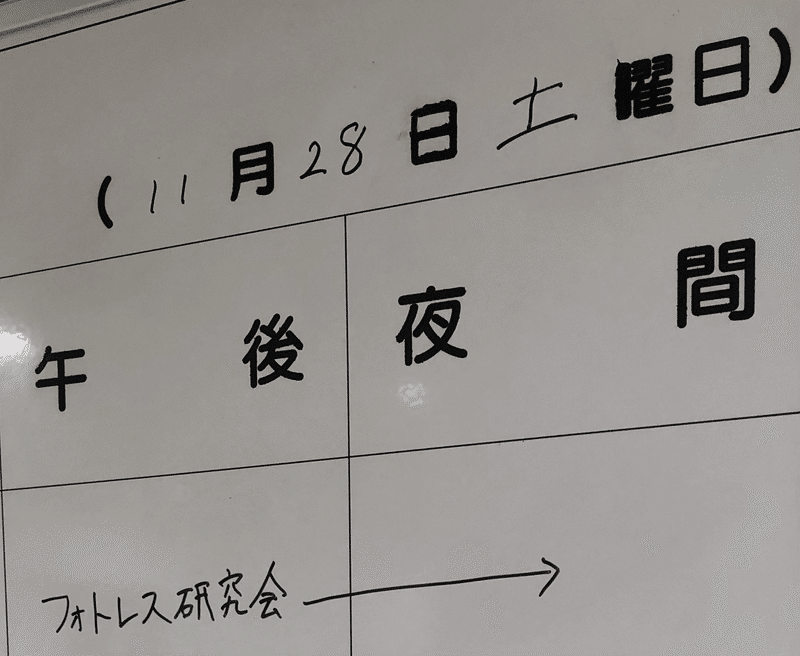 (11月28日土曜日)
午後 夜間
フォトレス研究会 →